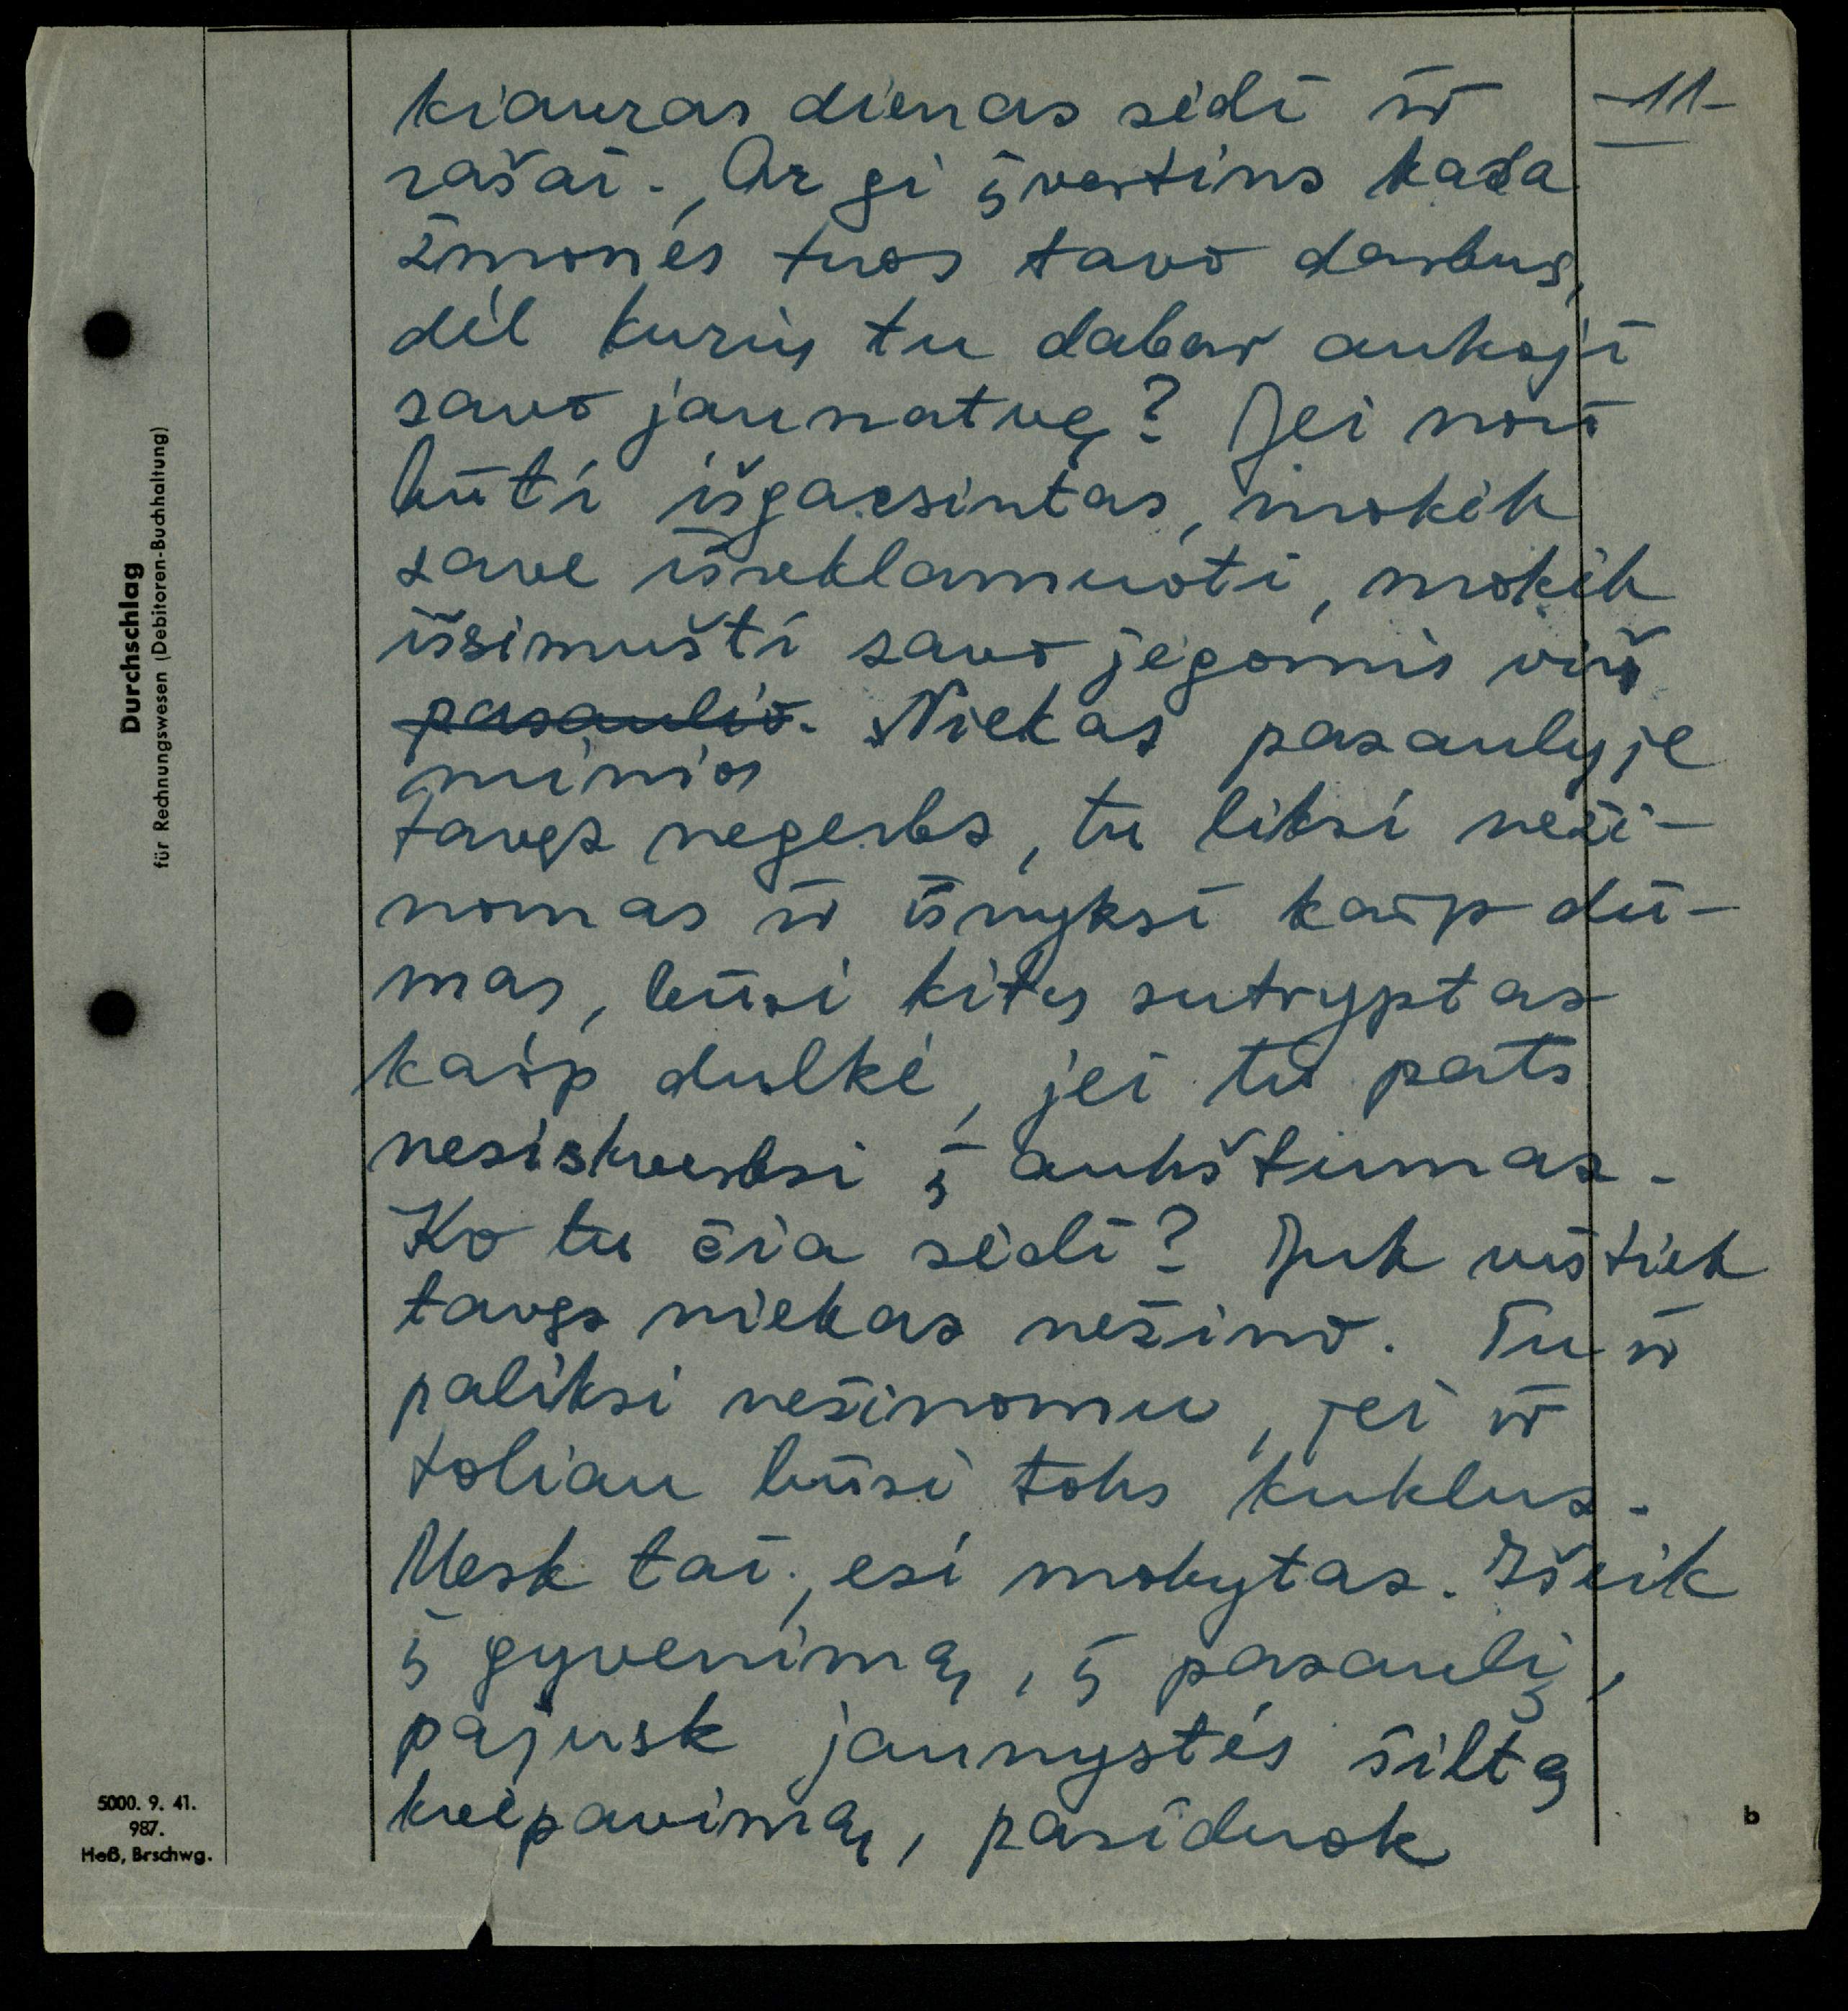 -11-
kiauras dienas sėdi ir
rašai. Ar gi įvertins kada
žmonės tuos tavo darbus,
dėl kurių tu dabar aukoji
savo jaunatvę? Jei nori
būti išgarsintas, mokėk
save išreklamuoti, mokėk
išsimušti savo jėgomis virš
pasaulio. Niekas pasaulyje
minios
tavęs negerbs, tu liksi neži-
nomas ir išnyksi kaip dū-
mas, būsi kitų sutryptas
kaip dulkė, jei tu pats
nesiskverbsi į aukštumas.
Ko tu čia sėdi? Juk vistiek
tavęs niekas nežino. Tu ir
paliksi nežinomu, jei ir
toliau būsi toks kuklus.
Mesk tai, esi mokytas. Išeik
į gyvenimą, į pasaulį,
pajusk jaunystės šiltą
kvėpavimą, pasiduok
Durchschlag
für Rechnungswesen (Debitoren-Buchhaltung)
5000. 9. 41.
987.
Heß, Brschwg.
b